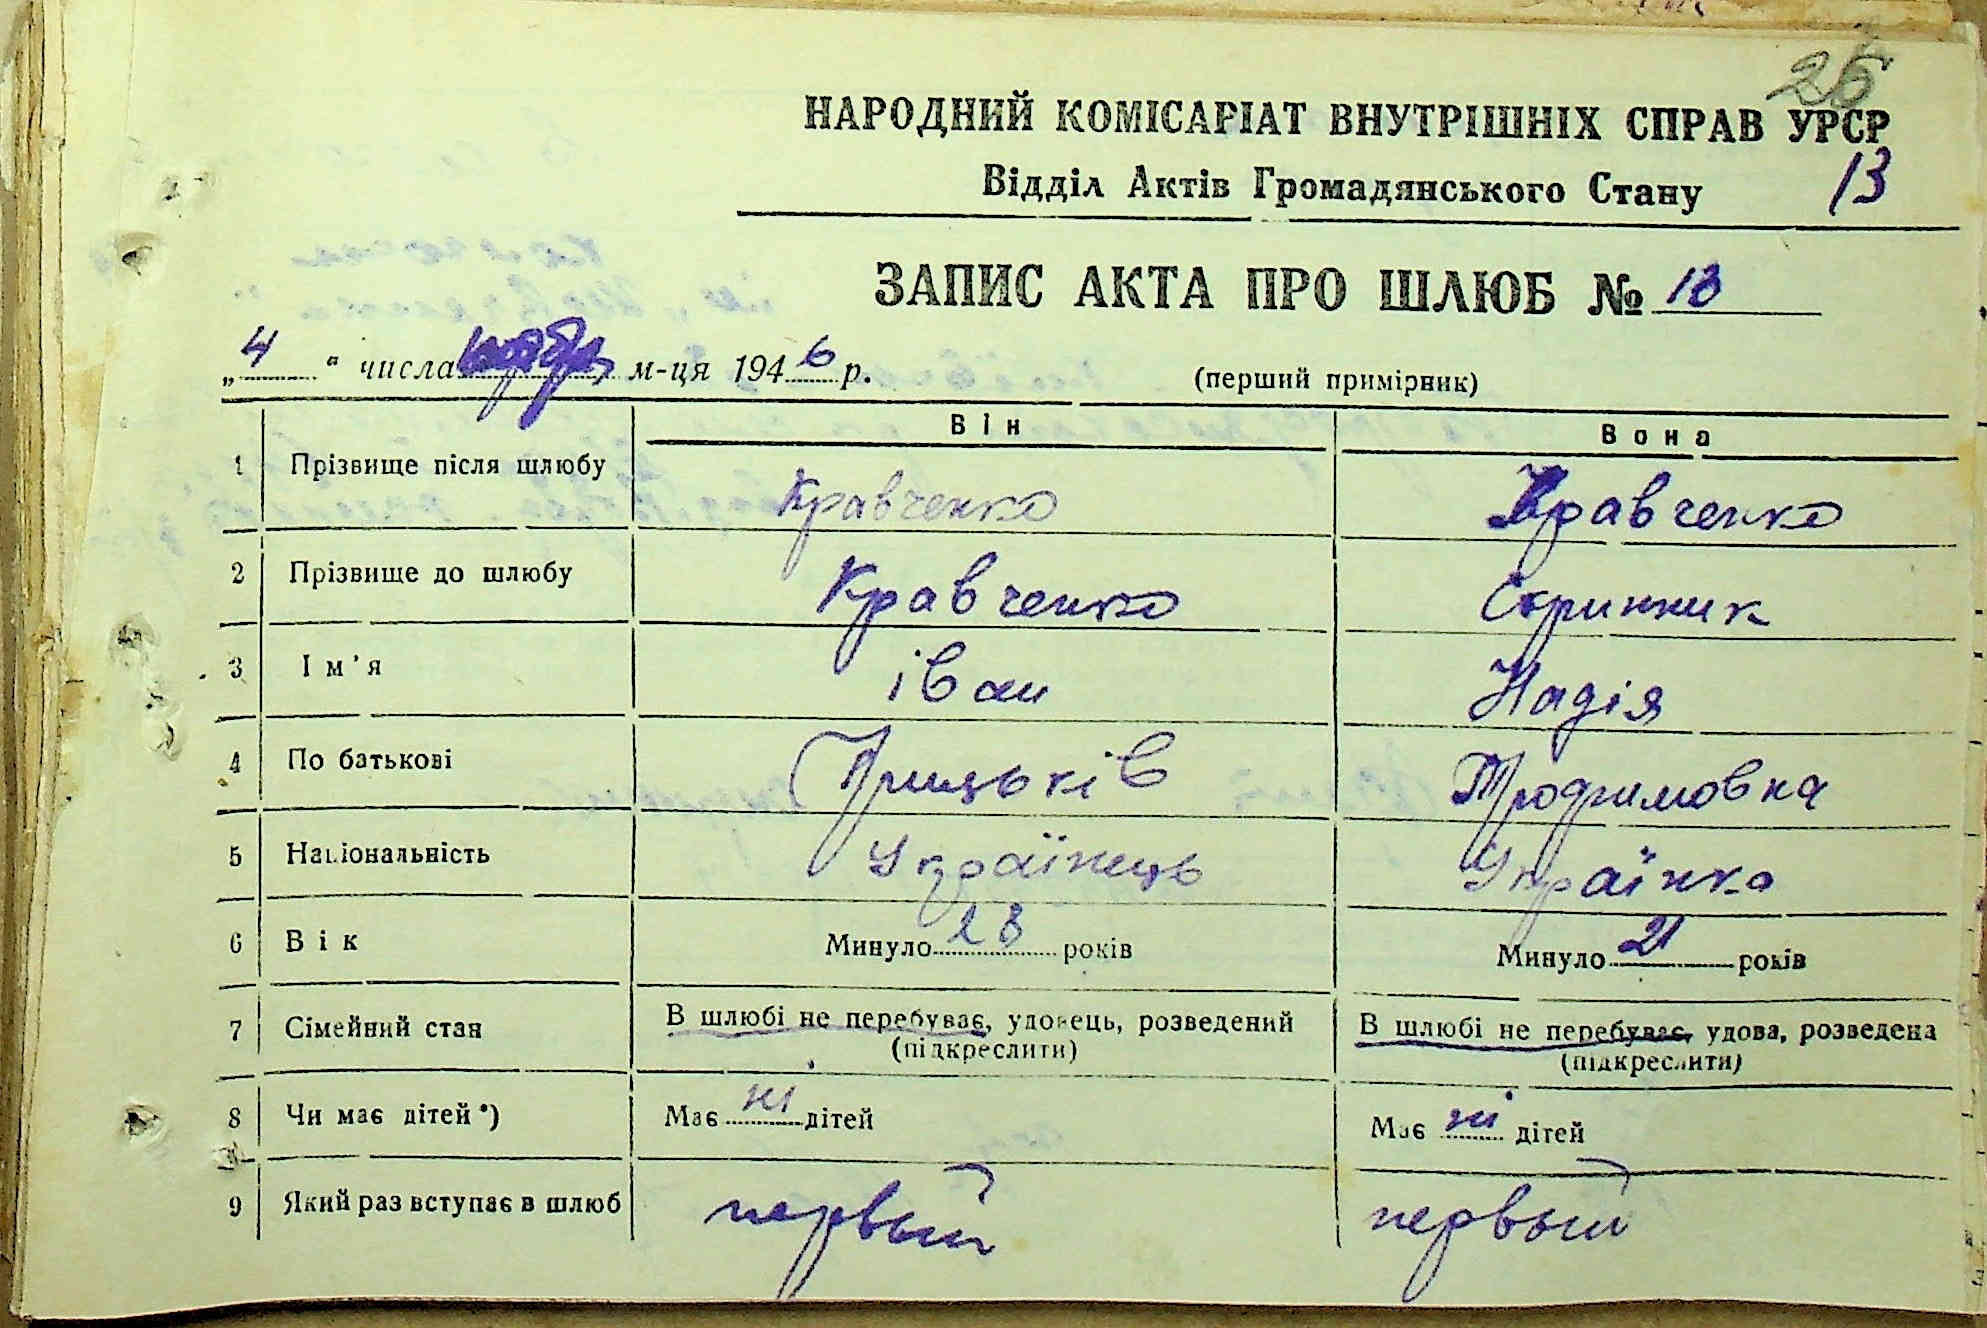 25
НАРОДНИЙ КОМІСАРІАТ ВНУТРІШНІХ СПРАВ УРСР
Відділ Актів Громадянського Стану 13
ЗАПИС АКТА ПРО ШЛЮБ № 13
„4" числа ноября м-ця 1946 р. (перший примірник)
Він Вона
1 Прізвище після шлюбу Кравченко Кравченко
2 Прізвище до шлюбу Кравченко Скринник
3 Ім'я іван Надія
4 По батькові Грицьків Трофимовна
5 Національність Українець Українка
6 Вік Минуло 23 років Минуло 21 років
7 Сімейний стан В шлюбі не перебуває, удовець, розведений В шлюбі не перебуває, удова, розведена
(підкреслити) (підкреслити)
8 Чи має дітей*) Має ні дітей Має ні дітей
9 Який раз вступає в шлюб первый первый